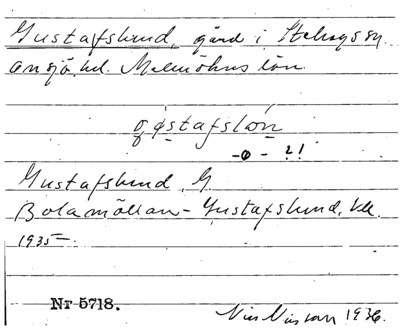 Gustafslund, gård i Stehags sn
Onsjö hd. Malmöhus län.
gøstafslón
-o- ?!
Gustafslund, G
Bolamöllan - Gustafslund,
1935-
Nr 5718.
Nils Nilsson 1936.